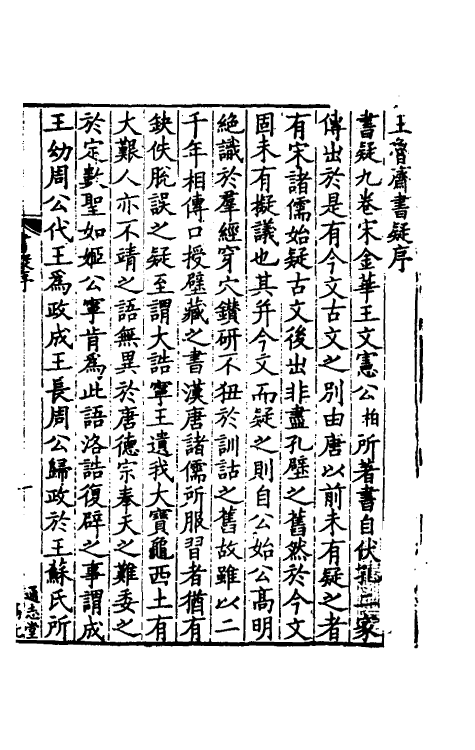 王魯齋書疑序
書疑九卷宋金華王文憲公柏所著書自伏孔二家
傳出於是有今文古文之別由唐以前未有疑之者
有宋諸儒始疑古文後出非盡孔壁之舊然於今文
固未有擬議也其并今文而疑之則自公始公高明
絶識於羣經穿穴鑚研不狃於訓詁之舊故雖以二
千年相傳口授壁藏之書漢唐諸儒所服習者猶有
缺佚脫誤之疑至謂大誥寧王遺我大寶龜西土有
大艱人亦不靖之語無異於唐德宗奉天之難委之
於定數聖如姬公寧肯爲此語洛誥復辟之事謂成
王幼周公代王爲政成王長周公歸政於王蘇氏所
書疑序
一
通志堂